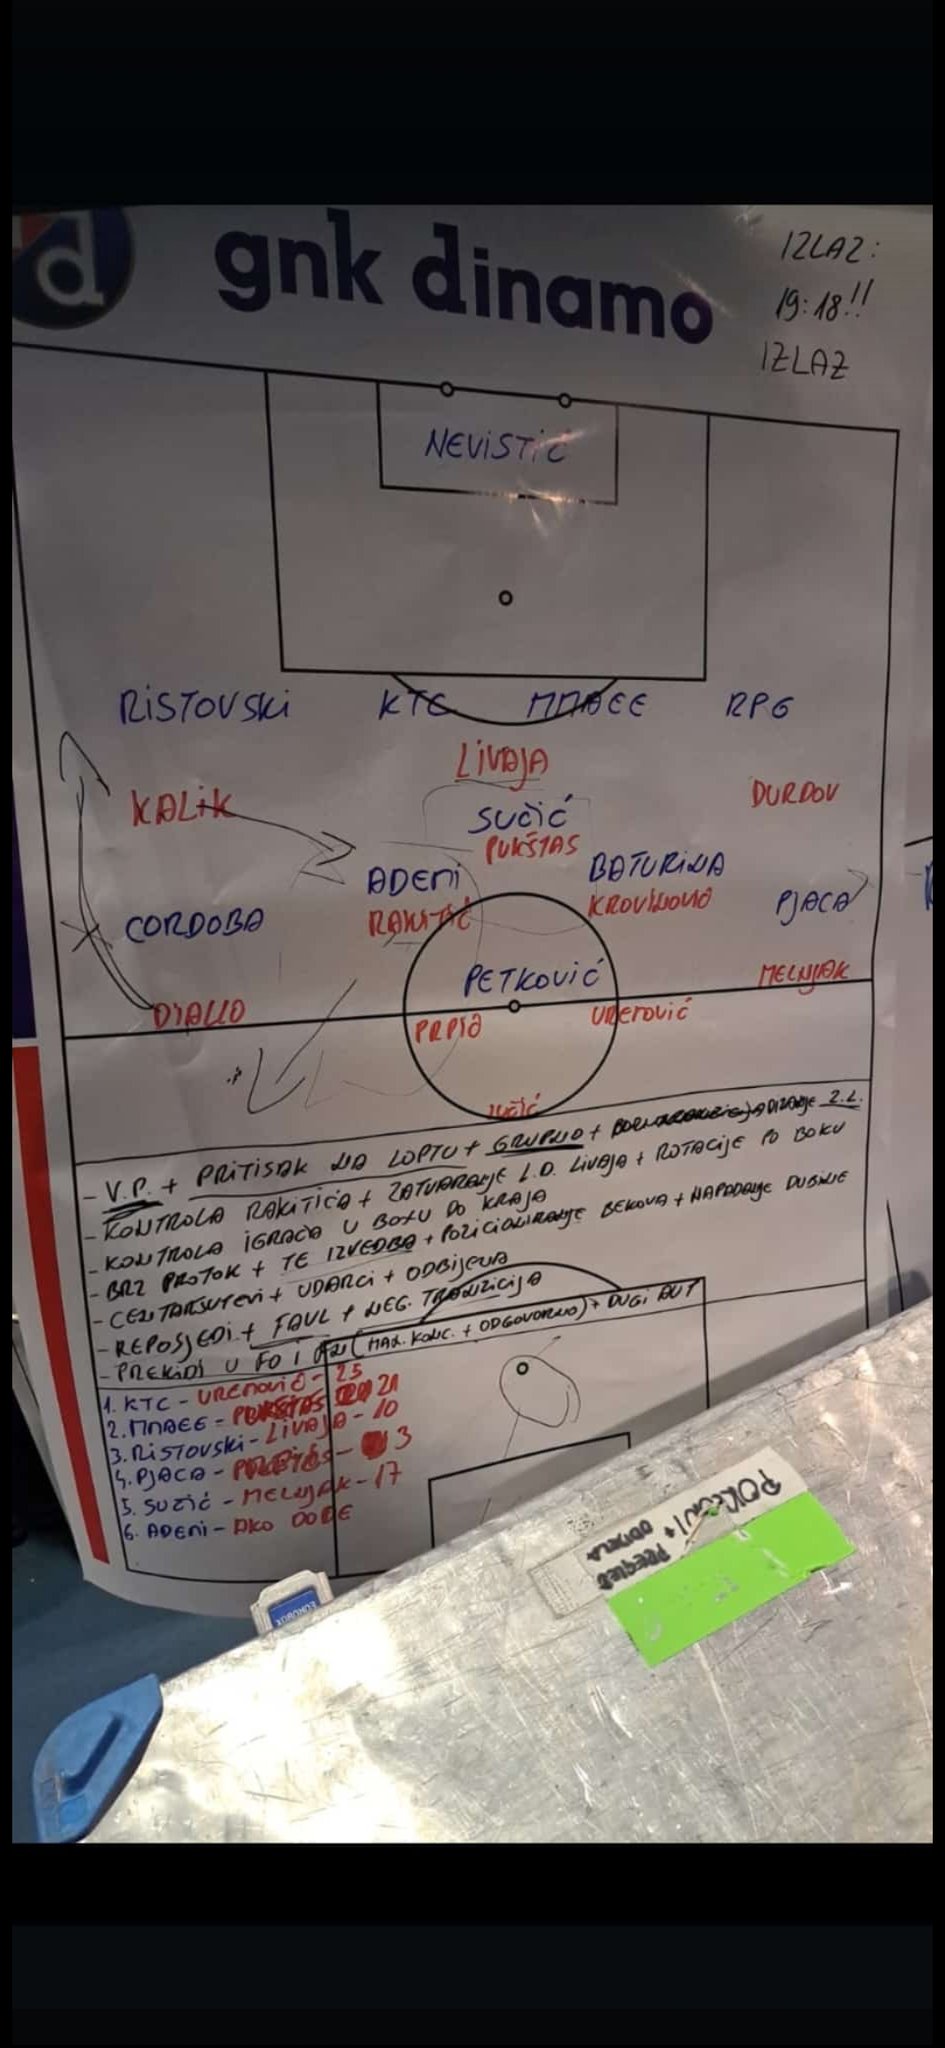 gnk dinamo
IZLAZ:
19:18!!
IZLAZ
NEVISTIĆ
RISTOVSKI KTC МПАЕЕ RPG
LIVAJA
KALIK DURDOV
SUČIĆ
PUKŠTAS
ADENI BATURINA
RAKITIĆ KROVINOVIĆ
CORDOBA PJACA
PETKOVIĆ
MELNJAK
DIALLO PRPIĆ UREMOVIĆ
- V.P. + PRITISAK NA LOPTU + GRUPNO + DIZANJE Z.L.
- KONTROLA RAKITIĆA + ZATVARANJE L.D. LIVAJA + ROTACIJE PO BOKU
- KONTROLA IGRAČA U BOXU DO KRAJA
- BRZ PROTOK + TE IZVEDBA + POZICIONIRANJE BEKOVA + NAPADANJE DUBINE
- CENTARŠUTEVI + UDARCI + ODBIJENA
- REPOSJEDI + FAUL + NEG. TRANZICIJA
- PREKIDI U FO I (MAX. KONC. + ODGOVORNO) + DUGI AUT
1. KTC - UREMOVIĆ - 25
2. МПАЕЕ - PUKŠTAS 21
3. RISTOVSKI - LIVAJA - 10
4. PJACA - 3
5. SUČIĆ - MELNJAK - 17
6. ADENI - AKO DOĐE
POKLONI +
ODIJELA